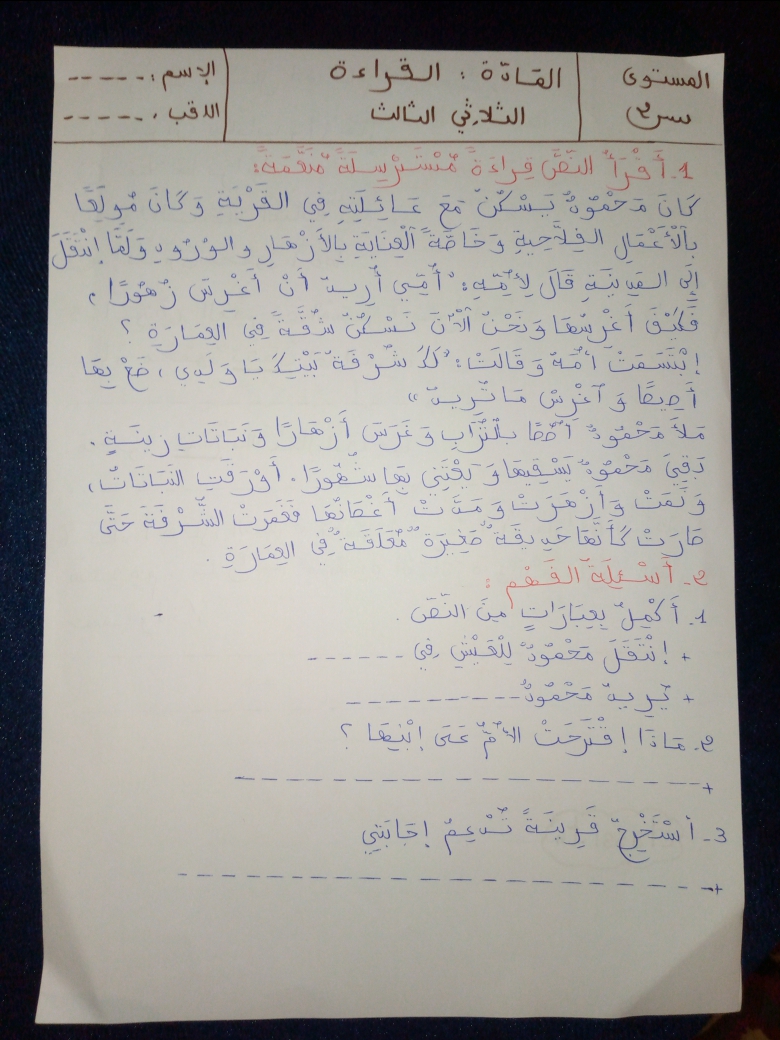 المستوى
س2
المادّة : القراءة
الثلاثي الثالث
الإسم : -----
اللقب : -----
1. أَقْرَأُ النَّصَّ قِرَاءَةً مُسْتَرْسِلَةً مُنَغَّمَةً:
كَانَ مَحْمُودٌ يَسْكُنُ مَعَ عَائِلَتِهِ فِي القَرْيَةِ وَكَانَ مُولَعًا
بِالأَعْمَالِ الفِلَاحِيةِ وَخَاصَّةً العِنَايَةِ بِالأَزْهَارِ والوُرُودِ وَلَمَّا إنْتَقَلَ
إلَى المَدِينَةِ قَالَ لِأُمِّهِ: "أُمِّي أُرِيدُ أَنْ أَغْرِسَ زُهُورًا،
فَكَيْفَ أَغْرِسُهَا وَنَحْنُ الْآنَ نَسْكُنُ شُقَّةً فِي العِمَارَةِ ؟
إبْتَسَمَتْ أُمُّهُ وَقَالَتْ: "لَكَ شُرْفَةُ بَيْتِكَ يَا وَلَدِي، ضَعْ بِهَا
أَصِيصًا وَ اغْرِسْ مَا تُرِيدُ"
مَلَأَ مَحْمُودٌ أُصُصًا بِالتُّرَابِ وَغَرَسَ أَزْهَارًا وَنَبَاتَاتِ زِينَةٍ.
بَقِيَ مَحْمُودٌ يَسْقِيهَا وَيَعْتَنِي بِهَا شُهُورًا. أَوْرَقَتِ النَبَاتَاتُ،
وَنَمَتْ وَأَزْهَرَتْ وَمَدَّتْ أَغْصَانَهَا فَغَمَرَتْ الشُّرْفَةَ حَتَّى
صَارَتْ كَأَنَّهَا حَدِيقَةٌ صَغِيرَةٌ مُعَلَّقَةٌ فِي العِمَارَةِ.
2. أَسْئِلَةُ الفَهْم :
1. أُكْمِلُ بِعِبَارَاتٍ مِنَ النَّصّ.
+ إنْتَقَلَ مَحْمُودٌ لِلْعَيْشِ فِي ------
+ يُرِيدُ مَحْمُودٌ----------
2. مَاذَا إقْتَرَحَتْ الأُمُّ عَلَى إبْنِهَا ؟
+--------------------
3. أسْتَخْرِجُ قَرِينَةً تُدْعِمُ إجَابَتِي
+----------------------